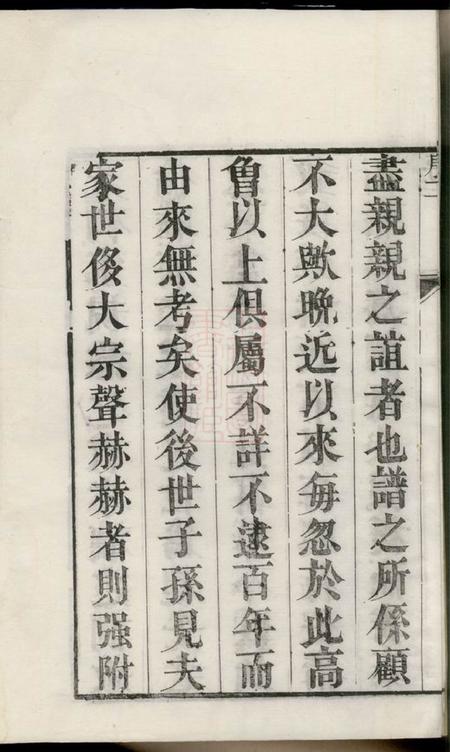 盡親親之誼者也譜之所係顧
不大歟晚近以來每忽於此高
曾以上俱屬不詳不逮百年而
由來無考矣使後世子孫見夫
家世俊大宗聲赫赫者則强附